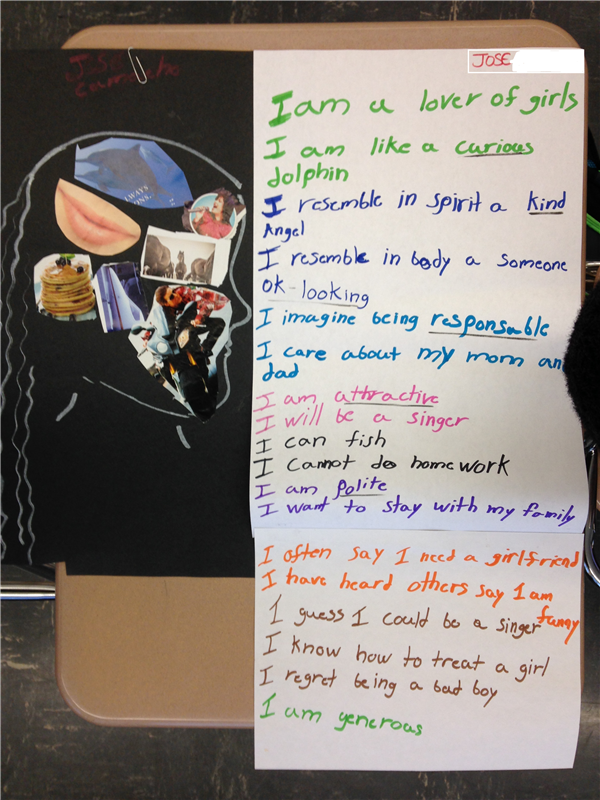 Jose
Camacho
ALWAYS
JOSE
I am a lover of girls
I am like a curious
dolphin
I resemble in spirit a kind
Angel
I resemble in body a someone
ok-looking
I imagine being responsable
I care about my mom an
dad
I am attractive
I will be a singer
I can fish
I cannot do homework
I am polite
I want to stay with my family
I often say I need a girlfriend
I have heard others say I am
funny
I guess I could be a singer
I know how to treat a girl
I regret being a bad boy
I am generous